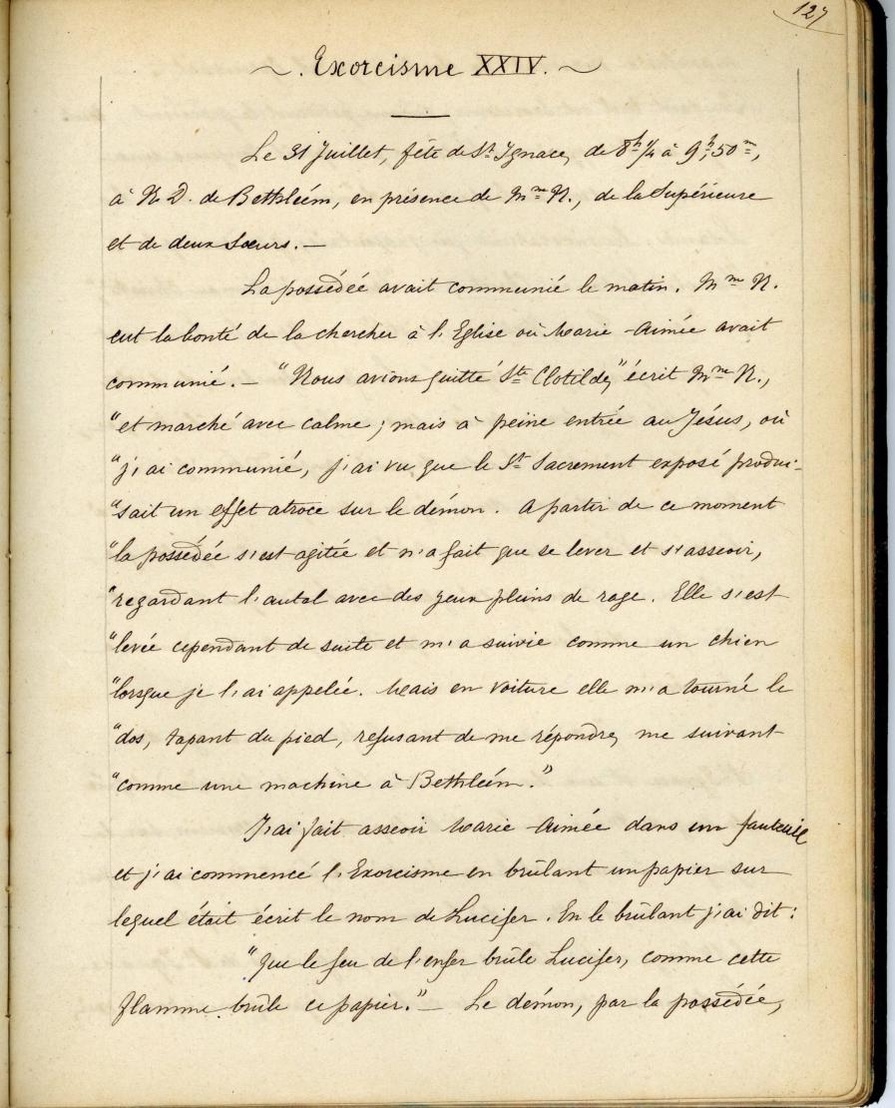 127
~. Exorcisme XXIV. ~
Le 31 Juillet, fête de St. Ignace, de 8h ¼ à 9h,50m,
à N. D. de Bethléem, en présence de Mme N., de la Supérieure
et de deux Sœurs. —
La possédée avait communié le matin. Mme N.
eut la bonté de la chercher à l'Eglise où Marie-Aimée avait
communié. — "Nous avions quitté Ste Clotilde," écrit Mme N.,
"et marché avec calme; mais à peine entrée au Jésus, où
"j'ai communié, j'ai vu que le St Sacrement exposé produi-
"sait un effet atroce sur le démon. A partir de ce moment
"la possédée s'est agitée et n'a fait que se lever et s'asseoir,
"regardant l'autel avec des yeux pleins de rage. Elle s'est
"levée cependant de suite et m'a suivie comme un chien
"lorsque je l'ai appelée. Mais en voiture elle m'a tourné le
"dos, tapant du pied, refusant de me répondre, me suivant
"comme une machine à Bethléem."
J'ai fait asseoir Marie-Aimée dans un fauteuil
et j'ai commencé l'Exorcisme en brûlant un papier sur
lequel était écrit le nom de Lucifer. En le brûlant j'ai dit:
"Que le feu de l'enfer brûle Lucifer, comme cette
flamme brûle ce papier." — Le démon, par la possédée,